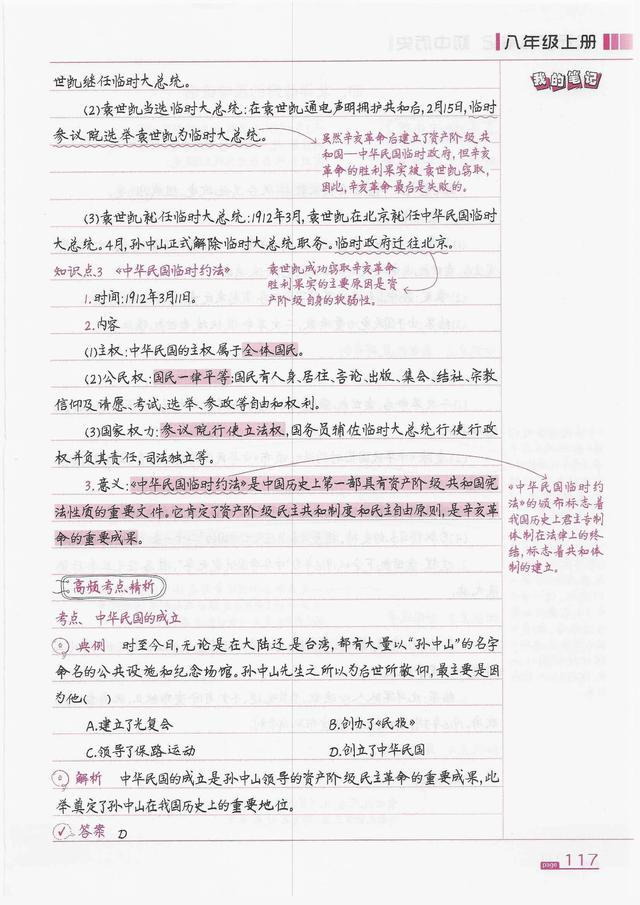 八年级上册
我的笔记
世凯继任临时大总统。
(2)袁世凯当选临时大总统:在袁世凯通电声明拥护共和后,2月15日,临时
参议院选举袁世凯为临时大总统。
虽然辛亥革命后建立了资产阶级共
和国—中华民国临时政府,但辛亥
革命的胜利果实被袁世凯窃取,
因此,辛亥革命最后是失败的。
(3)袁世凯就任临时大总统:1912年3月,袁世凯在北京就任中华民国临时
大总统。4月,孙中山正式解除临时大总统职务。临时政府迁往北京。
知识点3 《中华民国临时约法》
袁世凯成功窃取辛亥革命
胜利果实的主要原因是资
产阶级自身的软弱性。
1.时间:1912年3月11日。
2.内容
(1)主权:中华民国的主权属于全体国民。
(2)公民权:国民一律平等;国民有人身、居住、言论、出版、集会、结社、宗教
信仰及请愿、考试、选举、参政等自由和权利。
(3)国家权力:参议院行使立法权,国务员辅佐临时大总统行使行政
权并负其责任,司法独立等。
3.意义:《中华民国临时约法》是中国历史上第一部具有资产阶级共和国宪
法性质的重要文件。它肯定了资产阶级民主共和制度和民主自由原则,是辛亥革
命的重要成果。
《中华民国临时约
法》的颁布标志着
我国历史上君主专制
体制在法律上的终
结,标志着共和体
制的建立。
高频考点精析
考点 中华民国的成立
典例 时至今日,无论是在大陆还是台湾,都有大量以“孙中山”的名字
命名的公共设施和纪念场馆。孙中山先生之所以为后世所敬仰,最主要是因
为他( )
A.建立了光复会 B.创办了《民报》
C.领导了保路运动 D.创立了中华民国
解析 中华民国的成立是孙中山领导的资产阶级民主革命的重要成果,此
举奠定了孙中山在我国历史上的重要地位。
答案 D
page 117